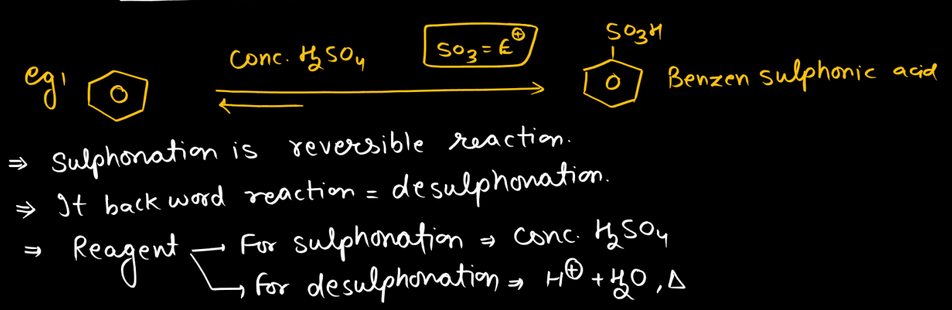 eg, Conc. H₂SO₄ SO₃ = E⊕ SO₃H Benzen sulphonic acid
⇒ Sulphonation is reversible reaction.
⇒ It back word reaction = desulphonation.
⇒ Reagent → For sulphonation ⇒ Conc. H₂SO₄
→ For desulphonation ⇒ H⊕ + H₂O, Δ